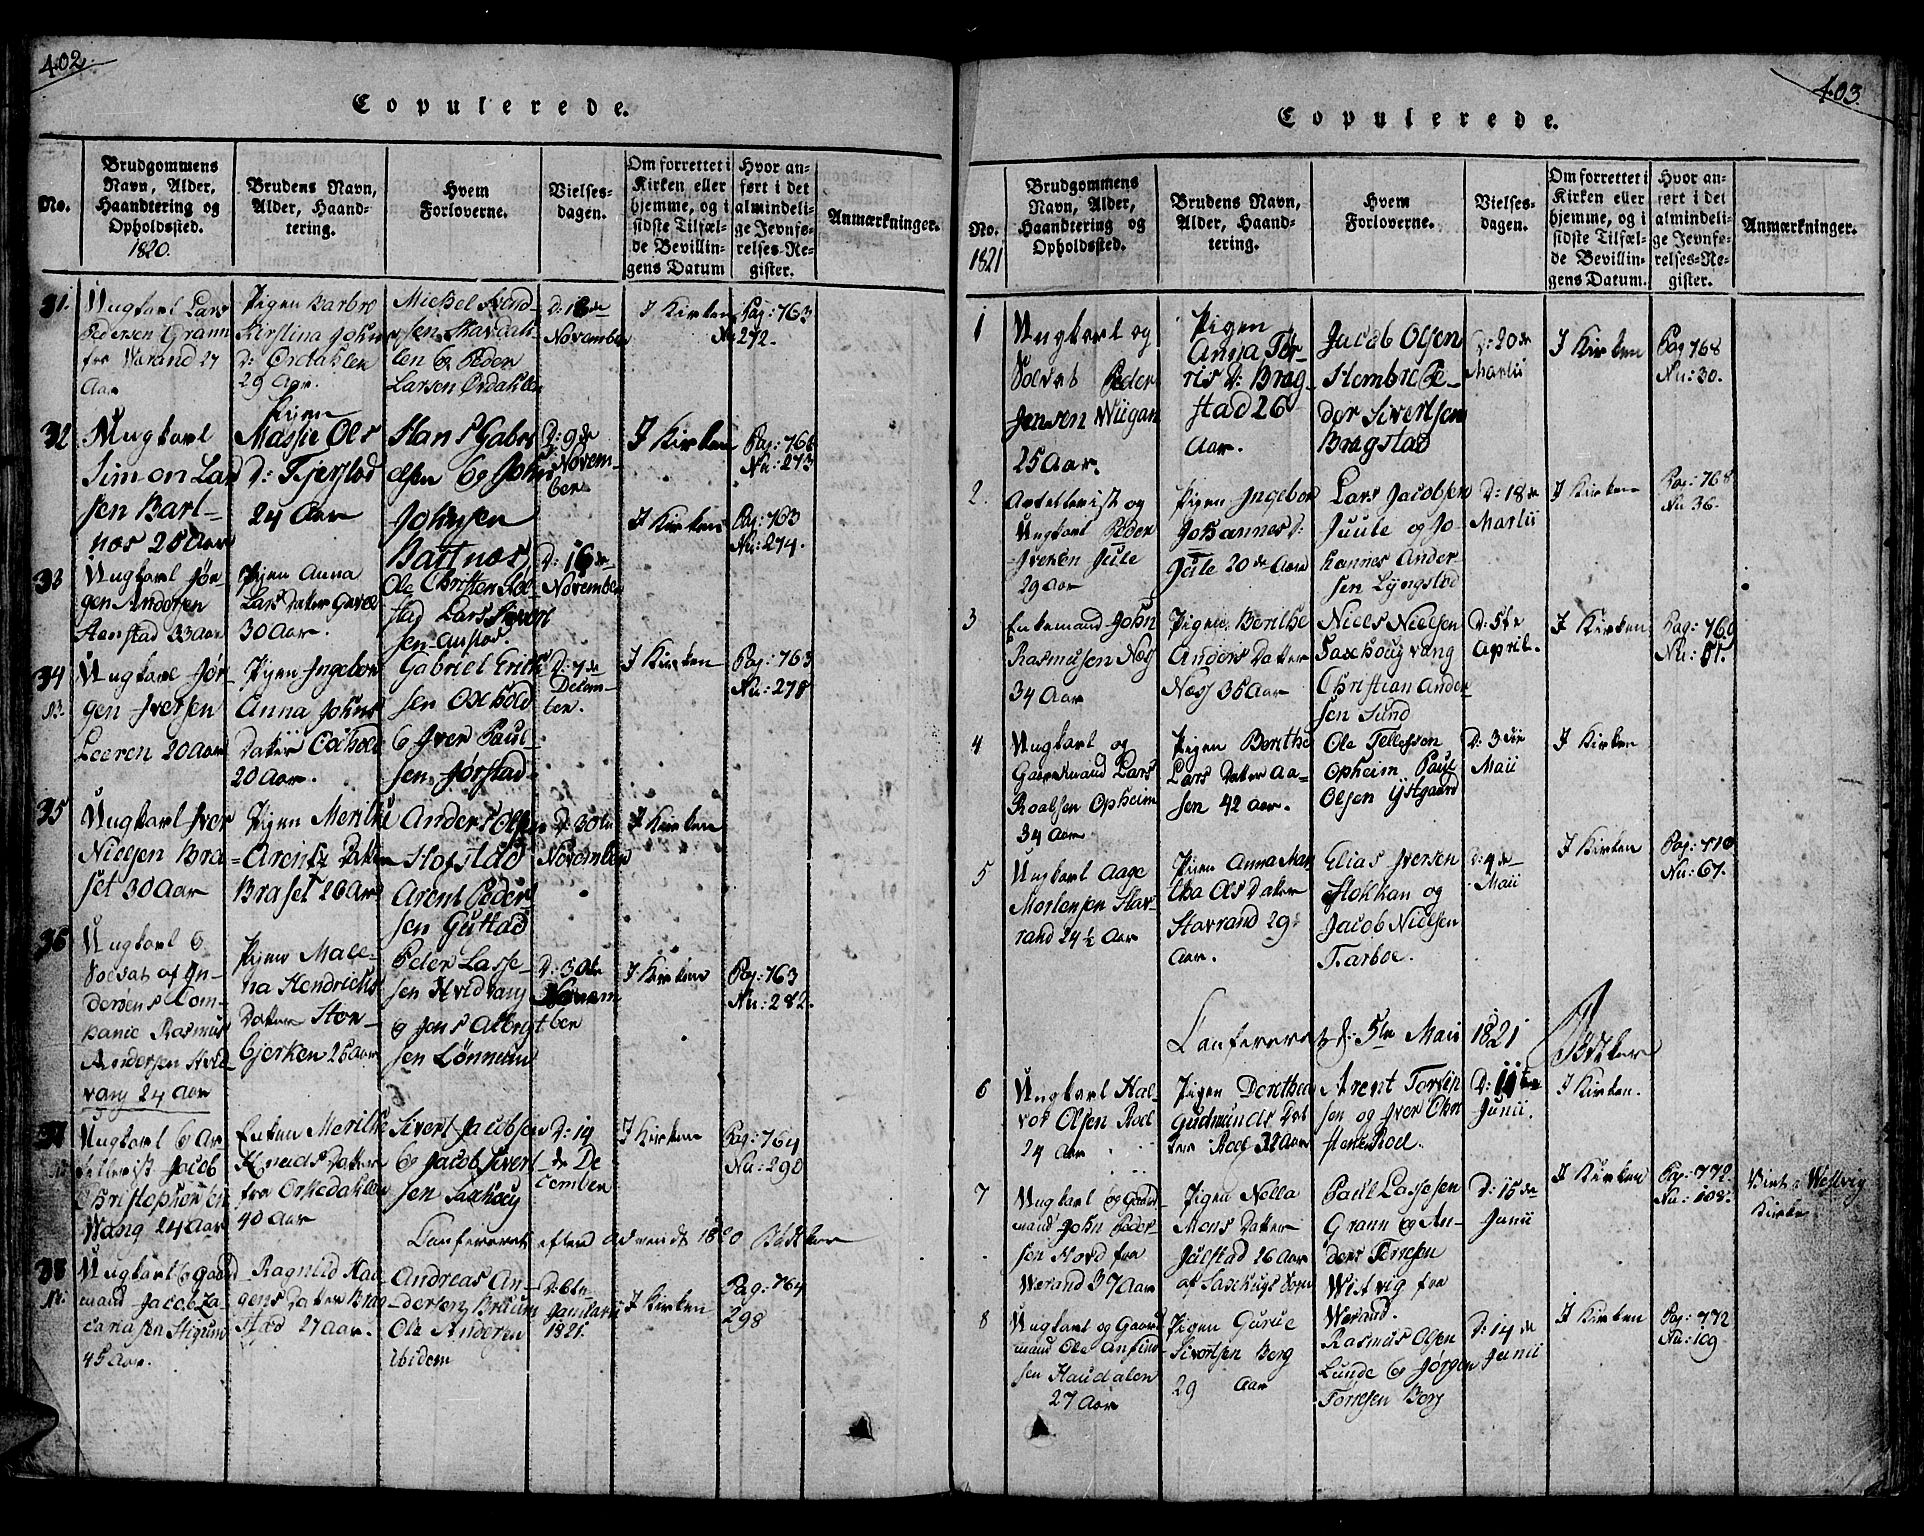 402.
Copulerede.
No.
Brudgommens
Navn, Alder,
Haandtering og
Opholdssted.
1820.
Brudens Navn,
Alder, Haand-
tering.
Hvem
Forloverne.
Vielses-
dagen.
Om forrettet i
Kirken eller
hjemme, og i
sidste Tilfæl-
de Bevillin-
gens Datum
Hvor an-
ført i det
almindeli-
ge Jevnfø-
relses-Re-
gister.
Anmærkninger.
31.
Ungkarl Lars
Pedersen Grann
fra Wærand 27
Aar
Pigen Barbro
Kirstina Johns
D: Ordahlen
29 Aar.
Michel Svend
sen Skavdah
len & Peder
Larsen Ordahlen
D: 18de
November
I Kirken
Pag: 763
No 272.
32
Ungkarl
Simon Lar
sen Bart-
næs 28 Aar
Pigen
Massie Ols
D: Tjerstad
24 Aar
Hans Gabri
elsen & John
Johnsen
Bartnæs
D: 9de
Novem-
ber
I Kirken
Pag: 766
Nu: 273
33
Ungkarl Jør-
gen Andersen
Aenstad 33 Aar
Pigen Anna
Lars Dater
30 Aar.
Ole Christensen
stad Lars Sivert
sen Austad.
D: 16de
November
I Kirken
Pag: 763
Nu: 274.
34
Ungkarl Jør-
gen Iversen
Leeren 20 Aar
Pigen Ingebor
Anna Johns
Dater Oxhole
20 Aar.
Gabriel Erich
sen Oxhold
& Iver Paul-
sen Jørstad
D: 7de
Decem-
ber.
I Kirken
Pag: 763
Nu: 278
35
Ungkarl Iver
Nielsen Bra-
set 30 Aar
Pigen Merithe
Arentz Dater
Braset 26 Aar
Anders Olsen
Hofstad
Arent Peder
sen Gustad
D: 30te
November
I Kirken
36
Ungkarl &
Soldat af An-
dersens Com-
panie Rasmus
Andersen Hvid
vang 24 Aar
Pigen Male-
na Hendrichs
Dater Stor-
bjerken 25 Aar
Peder Lasse-
sen Hvidvang
& Jens Albrigt
sen Lønnum
D: 30te
Novem
ber
I Kirken
Pag: 763
Nu: 282.
37
Ungkarl & Ar
tellerist Jacob
Christophersen
Wang 24 Aar
Enken Merithe
Knuds Dater
fra Orkedahlen
40 Aar
Sivert Jacobsen
& Jacob Sivert
sen Saxhoug
D: 14
de De
cember
I Kirken
Pag: 764
Nu: 290
Confereret efter advendt 1820 Bødtker
38
Ungkarl & Gaard
mand Jacob Za-
cariasen Stigum
45 Aar.
Ragnild Haa
gens Dater Brag
stad 27 Aar.
Andreas An-
dersen Bruum
Ole Andersen
ibidem
D: 6te
Januarii
1821.
I Kirken
Pag: 764
298
403.
Copulerede.
No.
1821
Brudgommens
Navn, Alder,
Haandtering og
Opholdssted.
Brudens Navn,
Alder, Haand-
tering.
Hvem
Forloverne.
Vielses-
dagen.
Om forrettet i
Kirken eller
hjemme, og i
sidste Tilfæl-
de Bevillin-
gens Datum.
Hvor an-
ført i det
almindeli-
ge Jevnfø-
relses-Re-
gister.
Anmærkninger.
1
Ungkarl og
Soldat Peder
Jensen Wiigan
25 Aar.
Pigen
Anna Tør-
ris D: Brag-
stad 26
Aar.
Jacob Olsen
Hembre Pe-
der Sivertsen
Bragstad
D: 20de
Martii
I Kirken
Pag 768
Nu: 30.
2.
Artellerist og
Ungkarl Peder
Iversen Jule
29 Aar
Pigen Ingebor
Johannes D:
Jule 20de Aar
Lars Jacobsen
Juule og Jo-
hannes Ander-
sen Lyngstad
D: 18de
Martii
I Kirken
Pag: 768
Nu 36.
3
Enkemand John
Rasmusen Næs
34 Aar
Pigen Berithe
Anders Dater
Næss 36 Aar
Niels Nielsen
Saxhougvang
Christian Ander
sen Sund
D: 5te
April.
I Kirken
Pag: 769
Nu: 51.
4
Ungkarl og
Gaardmand Lars
Roalsen Opheim
34 Aar
Pigen Berithe
Lars Dater Aa-
sen 42 Aar.
Ole Tellefsen
Opheim Paul
Olsen Ystgaard
D: 3die
Maii
I Kirken
5
Ungkarl Aage
Mortensen Stav-
rand 24½ Aar
Pigen Anna Mar
tha Ols Dater
Stavrand 29
Aar.
Elias Iversen
Stokkan og
Jacob Nielsen
Tarboe.
D: 4de
Maii
I Kirken
Pag: 770
Nu: 67.
Confereret d: 5te Maii 1821 Bødtker
6
Ungkarl Hal-
vor Olsen Roel
24 Aar
Pigen Dorethea
Gudmunds Dat
ter Roel 32 Aar
Arent Torsten
sen og Iver Chri
stensen Roel.
D: 11te
Junii.
I Kirken.
7
Ungkarl & Gaard
mand John Peder-
sen Hovd fra
Wærand 37 Aar
Pigen Nella
Mons Dater
Julstad 26 Aar
af Saxhougs Sogn
Paul Lassesen
Grann & An-
ders Torresen
Wistvig fra
Werand.
D: 15de
Junii
I Kirken
Pag: 772.
Nu: 108.
Viet i Westvig
Kirke
8
Ungkarl og Gaard
mand Ole Anfind
sen Haudalen
27 Aar
Pigen Guruc
Sivertsen Berg
29 Aar
Rasmus Olsen
Lunde & Jørgen
Torresen Berg
D: 14de
Junii
I Kirken
Pag: 772
Nu: 109